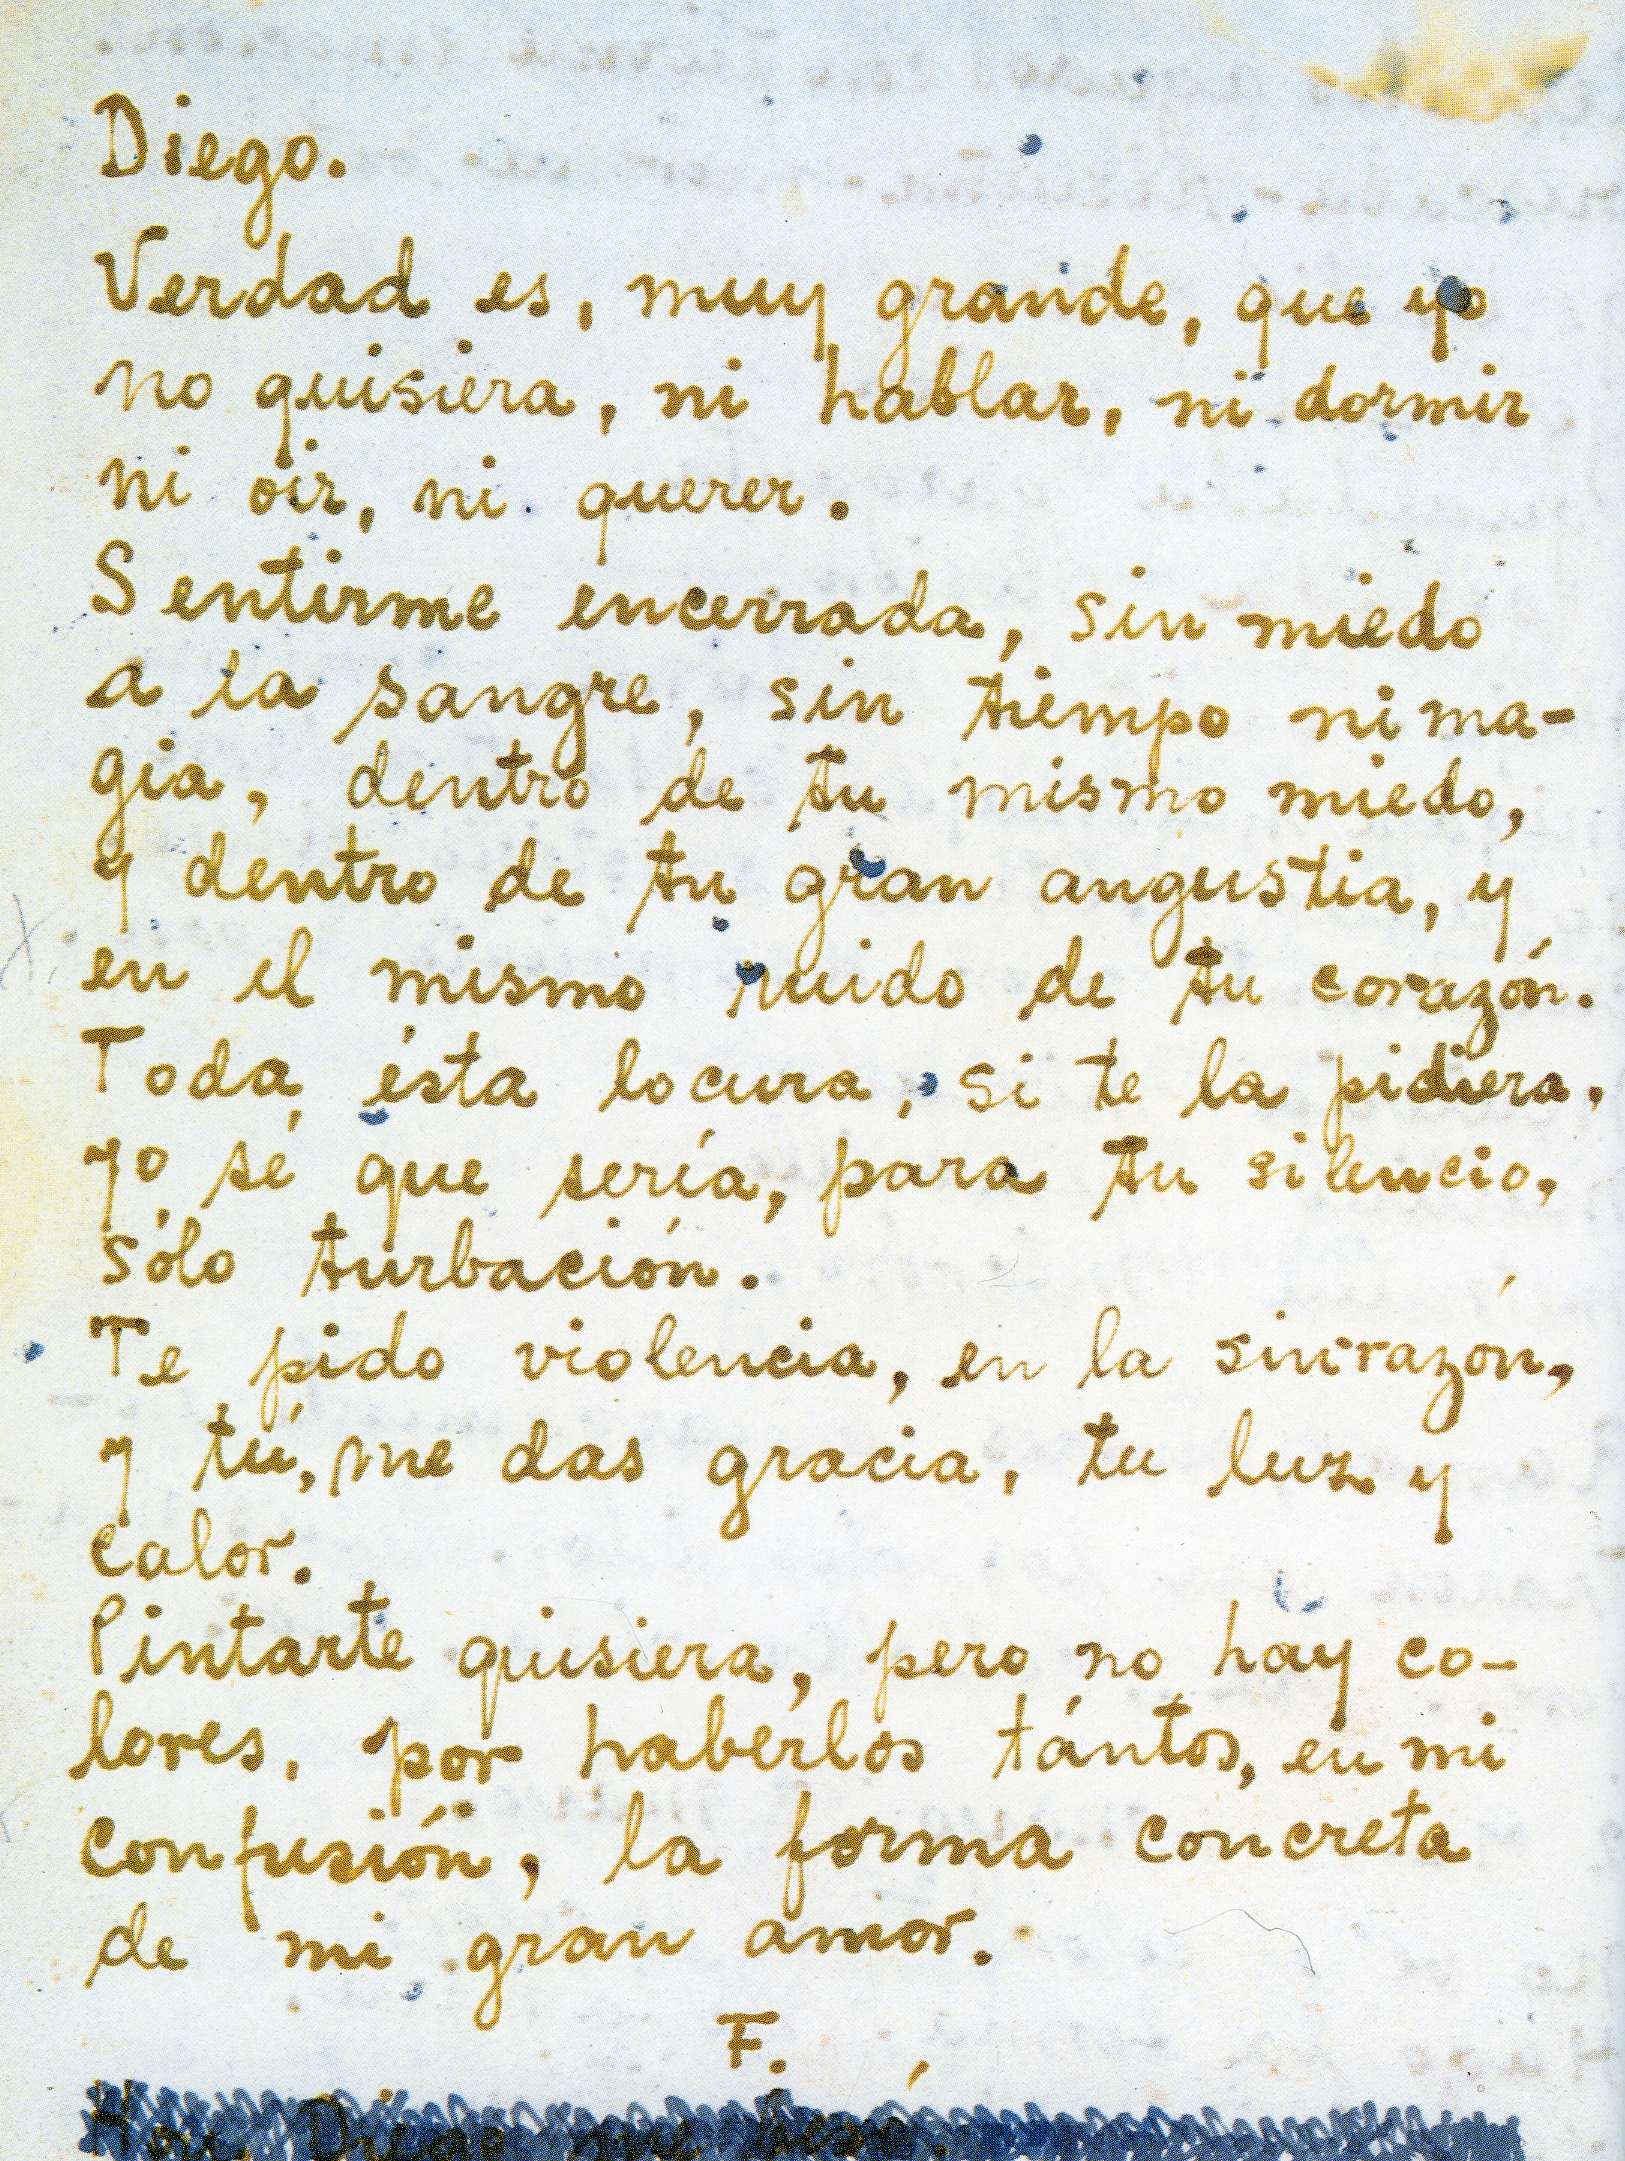 Diego.
Verdad es, muy grande, que yo
no quisiera, ni hablar, ni dormir
ni oir, ni querer.
Sentirme encerrada, sin miedo
a la sangre, sin tiempo ni ma-
gia, dentro de tu mismo miedo,
y dentro de tu gran angustia, y
en el mismo ruido de tu corazón.
Toda ésta locura, si te la pidiera,
yo sé que sería, para tu silencio,
sólo turbación.
Te pido violencia, en la sinrazón,
y tú, me das gracia, tu luz y
calor.
Pintarte quisiera, pero no hay co-
lores, por haberlos tántos, en mi
confusión, la forma concreta
de mi gran amor.
F.
Hoy Diego me